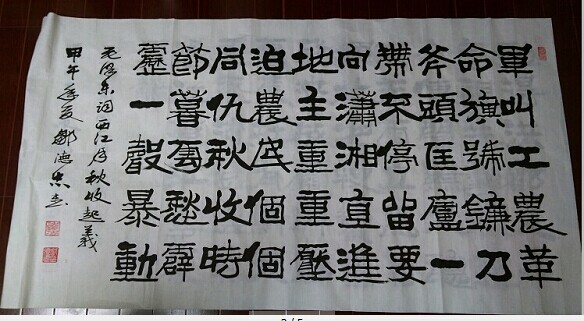 軍叫工農革
命旗號鐮刀
斧頭匡廬一
帶不停留要
向瀟湘直進
地主重重壓
迫農民個個
同仇秋收時
節暮雲愁霹
靂一聲暴動
毛澤東詞西江月秋收起義
甲午年夏鄒德忠書